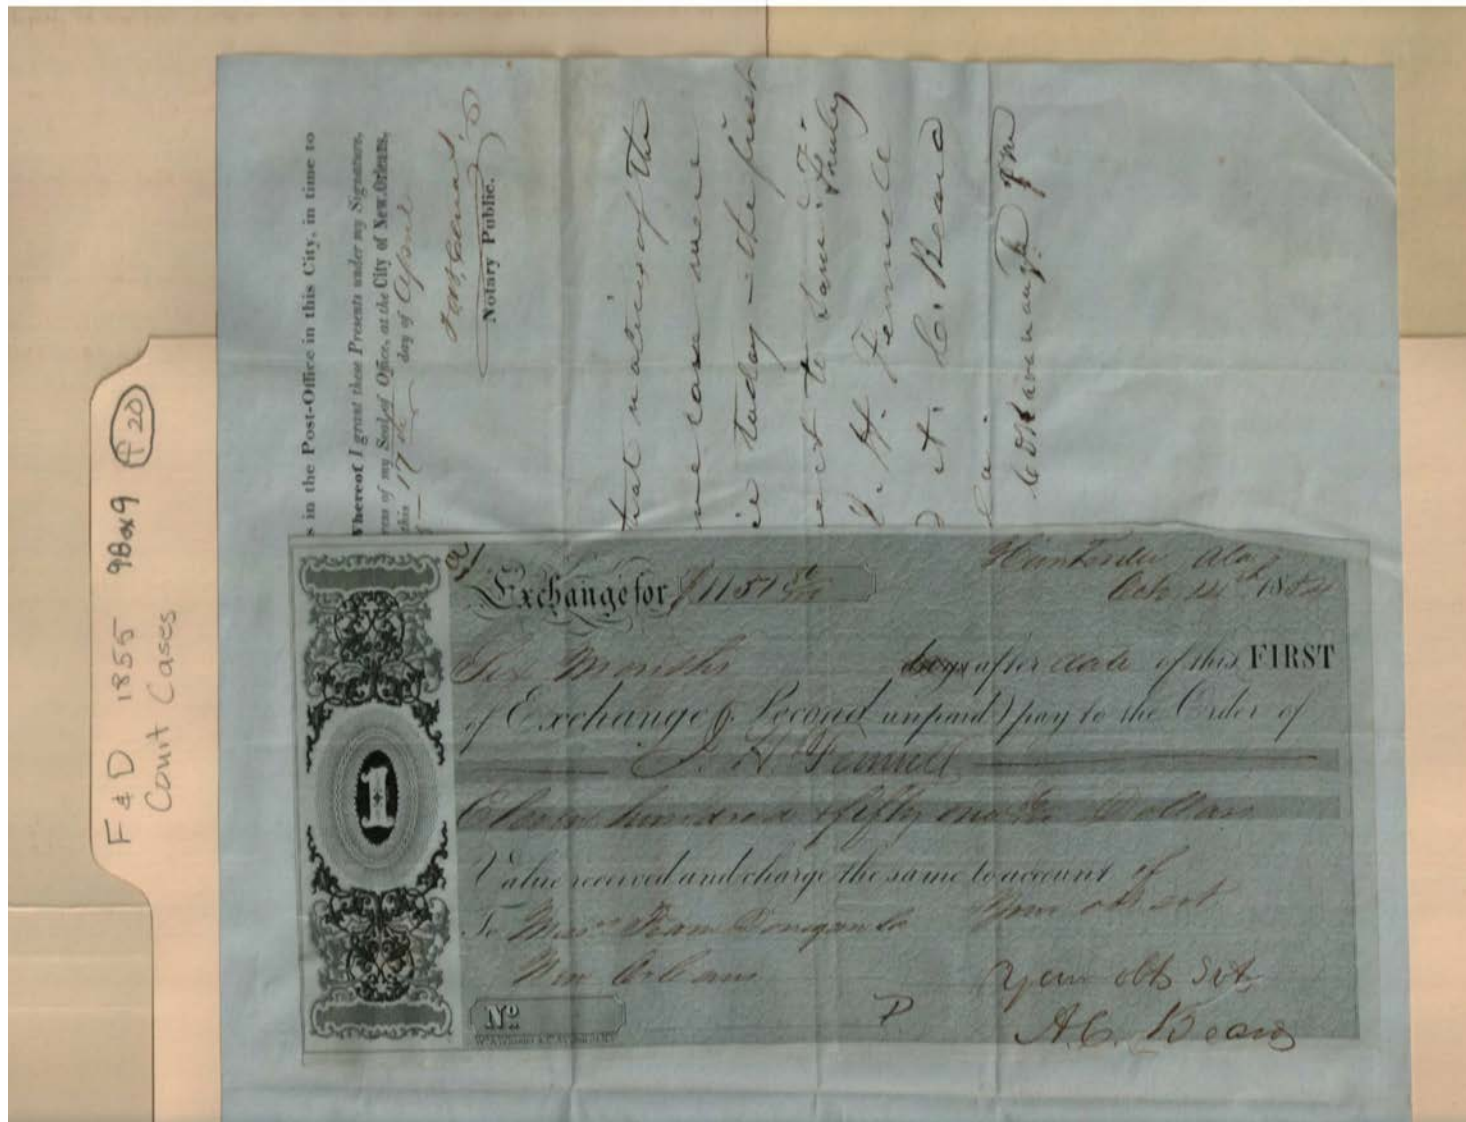 F & D 1855 9Box9 P 20
Court Cases
s in the Post-Office in this City, in time to
Whereof I grant these Presents under my Signature,
ress of my Seal of Office, at the City of New-Orleans,
this 17th day of April
Notary Public.
that notices of the
me case were
ie today - the first
ect to same
J. H. Fennell
A. C. Beard
Exchange for $1151
Huntsville Ala
Oct 14th 1854
Six Months days after date of this FIRST
of Exchange (Second unpaid) pay to the Order of
J. H. Fennell
Eleven hundred & fifty one Dollars
Value received and charge the same to account of
To Messrs Fearn Donegan Co Your obt svt
New Orleans Your obt svt
1
No P
A. C. Beard